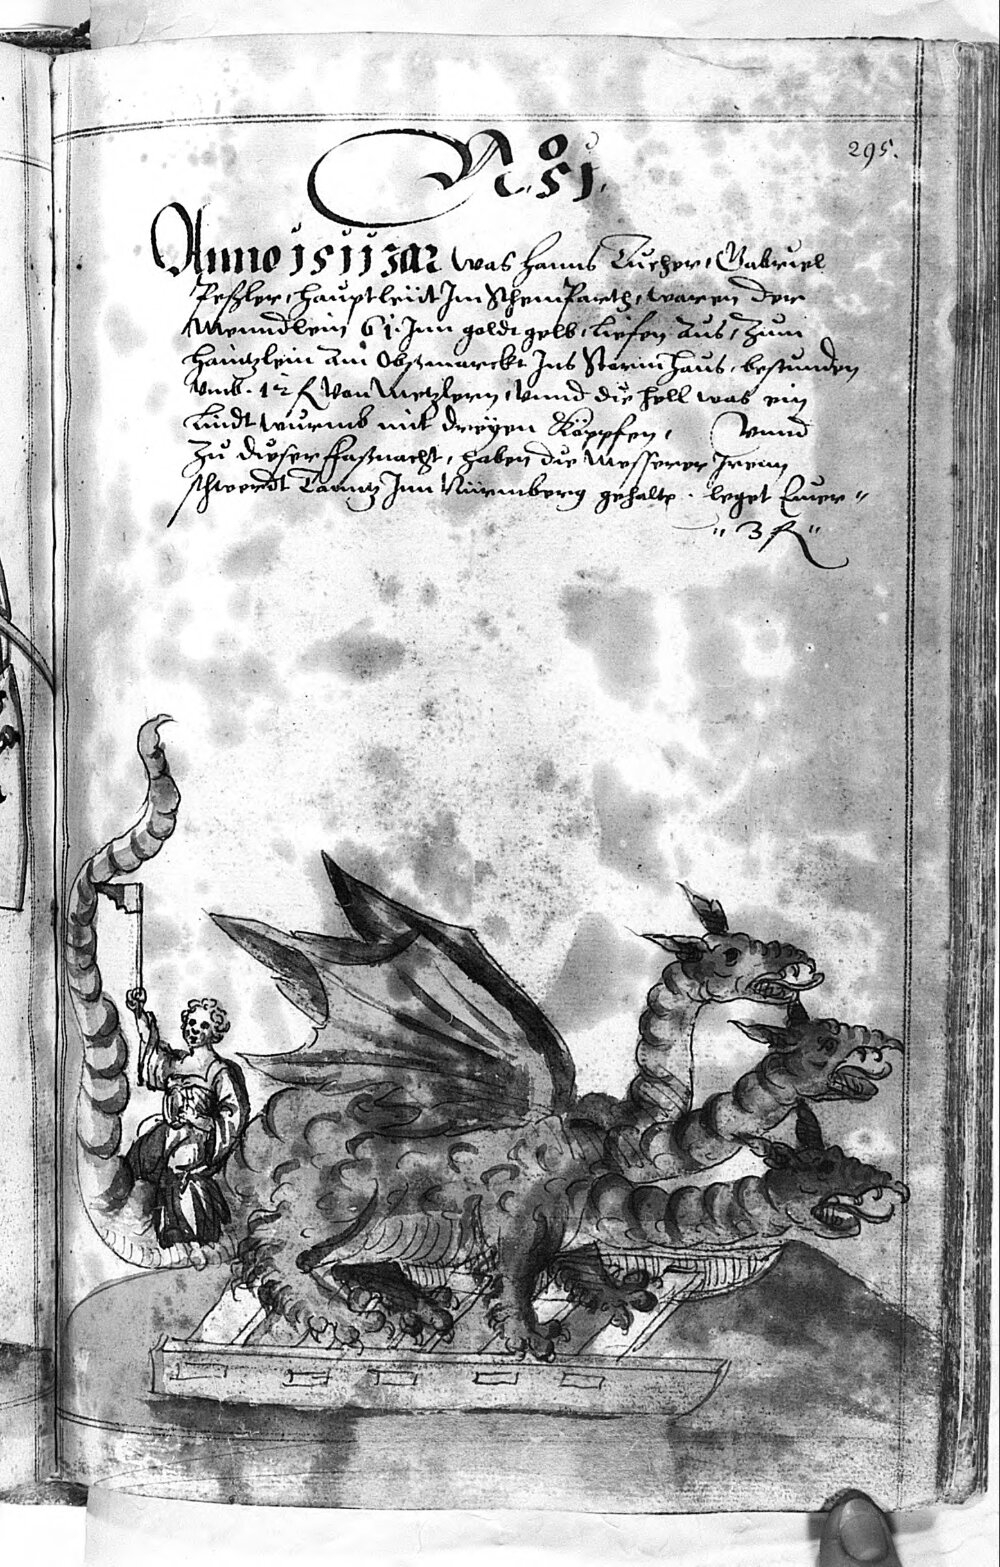 295.
No. 51.
Anno 1511 Jar was Hanns Tucher, Gabriel
Peßler, Hauptleüt Im Schempartt, waren der
Menndlein 61. Inn goldt gelb, liefen aus, zum
Haintzlein Am Obßmarckt Ins Sterin Haus, bestunden
vmb. 12 fl Von Metzlern, Vnnd die Hell was ein
Lindtwurmb mit dreyen Köppfen, Vnnd
Zu dieser Faßnacht, haben die Messerer Irenn
schwerdt Tanntz Inn Nürmberg gehaltt.
3 fl